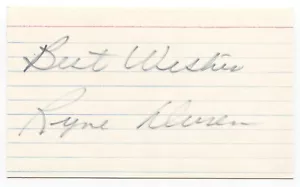 Best Wishes
Ryne Duren